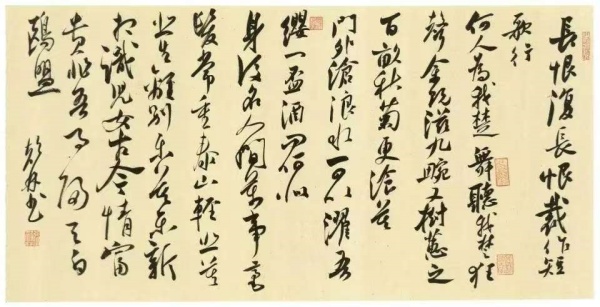 長恨復長恨裁作短
歌行
何人為我楚舞聽我楚狂
聲余既滋九畹又樹蕙之
百畝秋菊更飡英
門外滄浪水可以濯吾
纓一盃酒問何似
身後名人間萬事毫
髮常重泰山輕悲莫
悲生離別樂莫樂新
相識兒女古今情富
貴非吾事歸與白
鷗盟